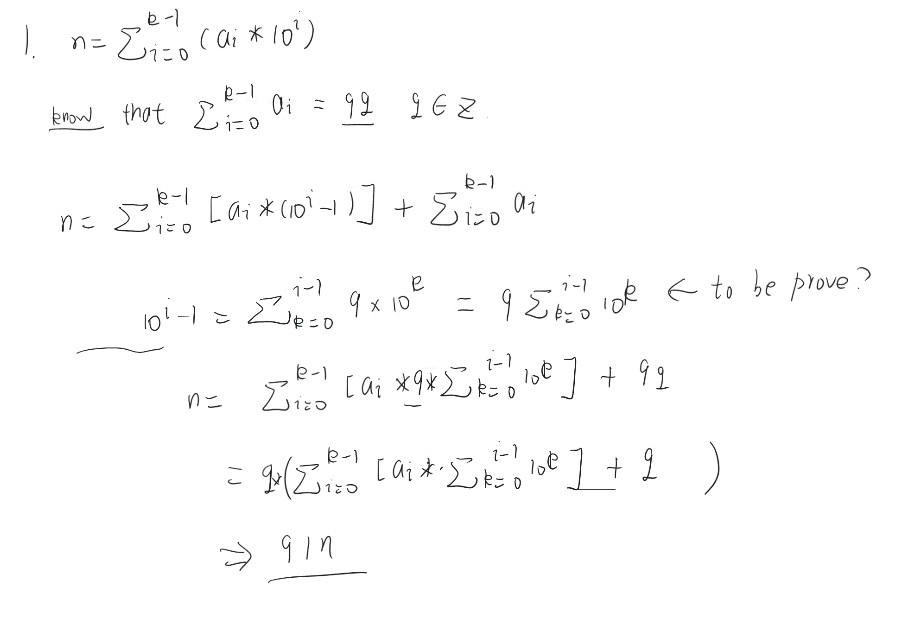 1. n = ∑_{i=0}^{k-1} (a_i * 10^i)
know that ∑_{i=0}^{k-1} a_i = 9q q ∈ Z.
n = ∑_{i=0}^{k-1} [a_i * (10^i - 1)] + ∑_{i=0}^{k-1} a_i
10^i - 1 = ∑_{k=0}^{i-1} 9 × 10^k = 9 ∑_{k=0}^{i-1} 10^k ← to be prove?
n = ∑_{i=0}^{k-1} [a_i * 9 * ∑_{k=0}^{i-1} 10^k] + 9q
= 9*(∑_{i=0}^{k-1} [a_i * ∑_{k=0}^{i-1} 10^k] + q)
⇒ 9|n